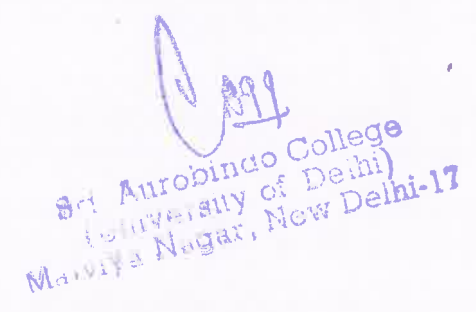 Sri Aurobindo College
(University of Delhi)
Malviya Nagar, New Delhi-17